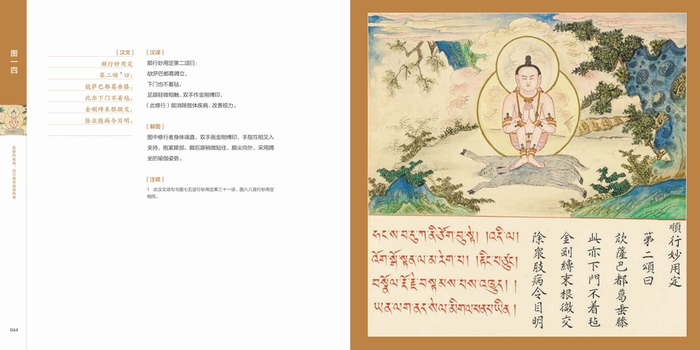 图一四
【汉文】
顺行妙用定
第二颂1曰:
欲萨巴都葛垂膝,
此亦下门不着毡,
金刚缚束根微交,
除众肢病令目明。
【汉译】
顺行妙用定第二颂曰:
欲萨巴都葛蹲立,
下门也不着毡。
足跟轻微相触,双手作金刚缚印,
(此修行)能消除肢体疾病,改善视力。
【解图】
图中修行者身体端直,双手施金刚缚印,手指互相交叉入
夹持,抱紧膝部,脚后跟稍微贴住,脚尖向外,采用蹲
坐的瑜伽姿势。
【注释】
1 此汉文颂句与图七五逆行妙用定第三十一颂、图六八逆行妙用定
相同。
644
འོག་སྒོ་སྟན་ལ་མ་རེག་པ། །རྟིང་ཅུང་
བསྣོལ་རྡོ་རྗེ་བསྡམས་པས་འཁྱུད། །
ཡན་ལག་ནད་སེལ་མིག་ལ་ཕན་པ་ཡིན།
順行妙用定
第二頌曰
欲薩巴都葛垂膝
此亦下門不着毡
金剛縛束根微交
除衆肢病令目明